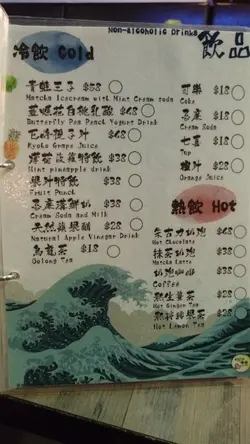 Non-Alcoholic Drinks
飲品
冷飲 Cold
青蛙王子 $58
Matcha Icecream with Mint Cream soda
$68
Butterfly Pea Peach Yogurt Drink
巨峰提子汁 $48
Kyoho Grape Juice
薄荷菠蘿特飲 $38
Mint pineapple drink
果汁特飲 $38
Fruit Punch
忌廉溝鮮奶 $38
Cream Soda and Milk
天然蘋果醋 $28
Natural Apple Vinegar Drink
烏龍茶 $18
Oolong Tea
可樂 $18
Coke
忌廉 $18
Cream Soda
七喜 $18
7up
橙汁 $28
Orange Juice
熱飲 Hot
朱古力奶 $38
Hot Chocolate
抹茶奶 $38
Matcha Latte
奶 咖啡 $38
Coffee
熱生薑茶 $28
Hot Ginger Tea
熱檸檬茶 $28
Hot Lemon Tea